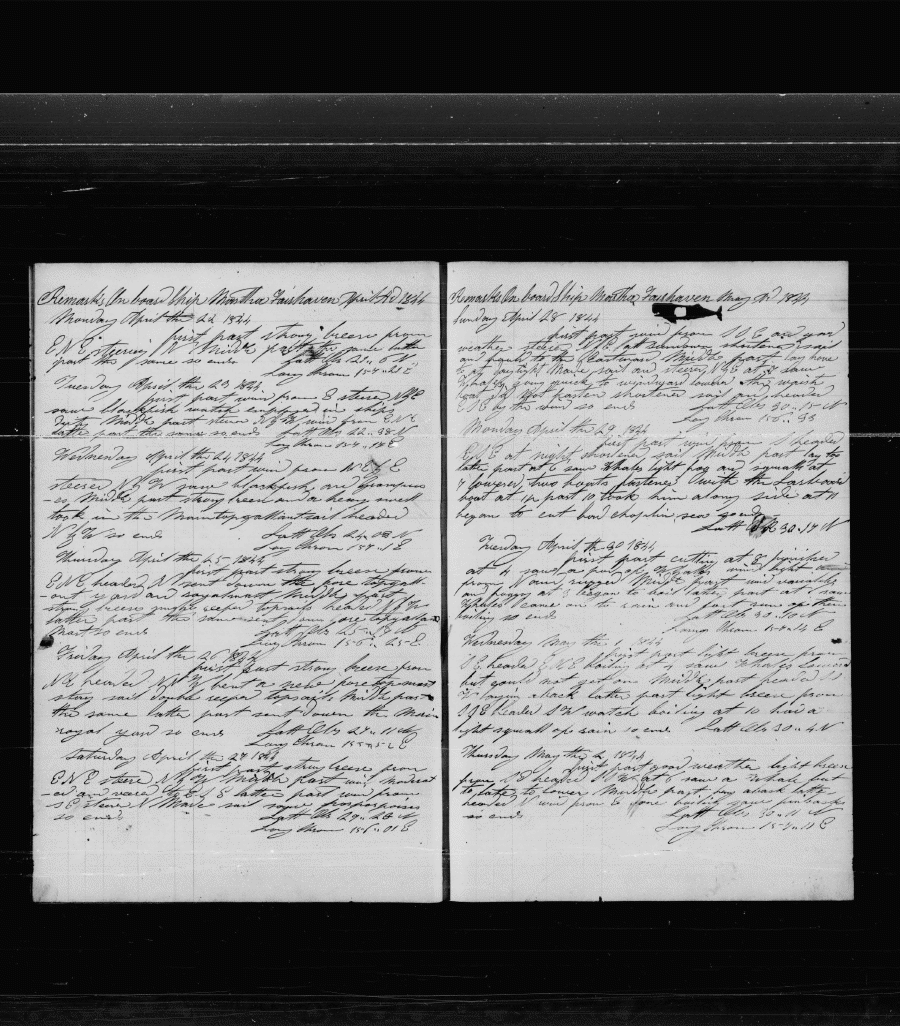 Remarks On board Ship Martha Fairhaven April 1844
Monday April the 22 1844
first part strong breese from
E N E steering N Middle part the same latter
part the same so ends Latt Obs 21 " 6 N
Long Chron 154 " E
Tuesday April the 23 1844
first part wind from E steered N B E
saw blackfish watch employed in ships
duty Middle part steered N B W wind from E N E
latter part the same so ends Latt Obs 22 " 38 N
Long Chron 154 " 18 E
Wednesday April the 24 1844
first part wind from N E B E
steered N B W saw blackfish and Grampus
-es Middle part strong breese and a heavy swell
took in the Maintopgallantsail headed
N B W so ends Latt Obs 24 " 08 N
Long Chron 154 " 1 E
Thursday April the 25 1844
first part strong breese from
E N E headed N sent down the fore topgall-
-ant yard and royalmast Middle part
strong breese reefed topsails headed N B W
latter part the same sent down fore topgallan
mast so ends Latt Obs 25 " 18 N
Long Chron 15 " 25 E
Friday April the 26 1844
first part strong breese from
N E headed N N W bent a new fore topmast
stay sail double reefed topsails Middle part
the same latter part sent down the Main
royal yard so ends Latt Obs 27 " 11 N
Long Chron E
Saturday April the 27 1844
first part strong breese from
E N E steered N B W Middle part wind moderat
-ed and veered to E S E latter part wind from
S E steered N Made sail saw porpoises
so ends Latt Obs 29 " 26 N
Long Chron 151 " 01 E
Remarks On board Ship Martha Fairhaven May 1844
Sunday April 28 1844
first part wind from S S E and good
weather steered at sundown shortened sail
and hauled to the Eastward Middle part lay hove
to at daylight Made sail and steered N B E at 8 saw
Whales going quick to windward lowered the waist
boat did not fasten shortened sail and headed
E N E by the wind so ends Latt Obs 30 " 15 N
Long Chron 150 " 33
Monday April the 29 1844
first part wind from S headed
E N E at night shortened sail Middle part lay to
latter part at 6 saw Whales light fog and squalls at
7 lowered two boats fastened with the Larboard
boat at 1/2 past 10 took him along side at 11
began to cut bad choplin sea so ends
Latt Obs 30 " 17 N
Tuesday April the 30 1844
first part cutting at 3 finished
at 4 saw a Whale wind light
from N and rugged Middle part wind
and foggy at 3 began to boil latter part at saw
Whales came on to rain and fast run of them
boiling so ends Latt Obs 30 " 30 N
Long Chron 150 " 14 E
Wednesday May the 1 1844
first part light breese from
S E headed E N E boiling at 4 saw Whales lowered
but could not get on Middle part headed
S W laying aback latter part light breese from
S S E headed S W watch boiling at 10 had a
light squall of rain so ends Latt Obs 30 " 4 N
Thursday May the 2 1844
first part good weather light breese
from S E headed at 6 saw a Whale but
to late to lower Middle part lay aback latter
headed N wind from E done boiling saw finbacks
so ends Latt Obs 30 " 11 N
Long Chron 15 " 11 E